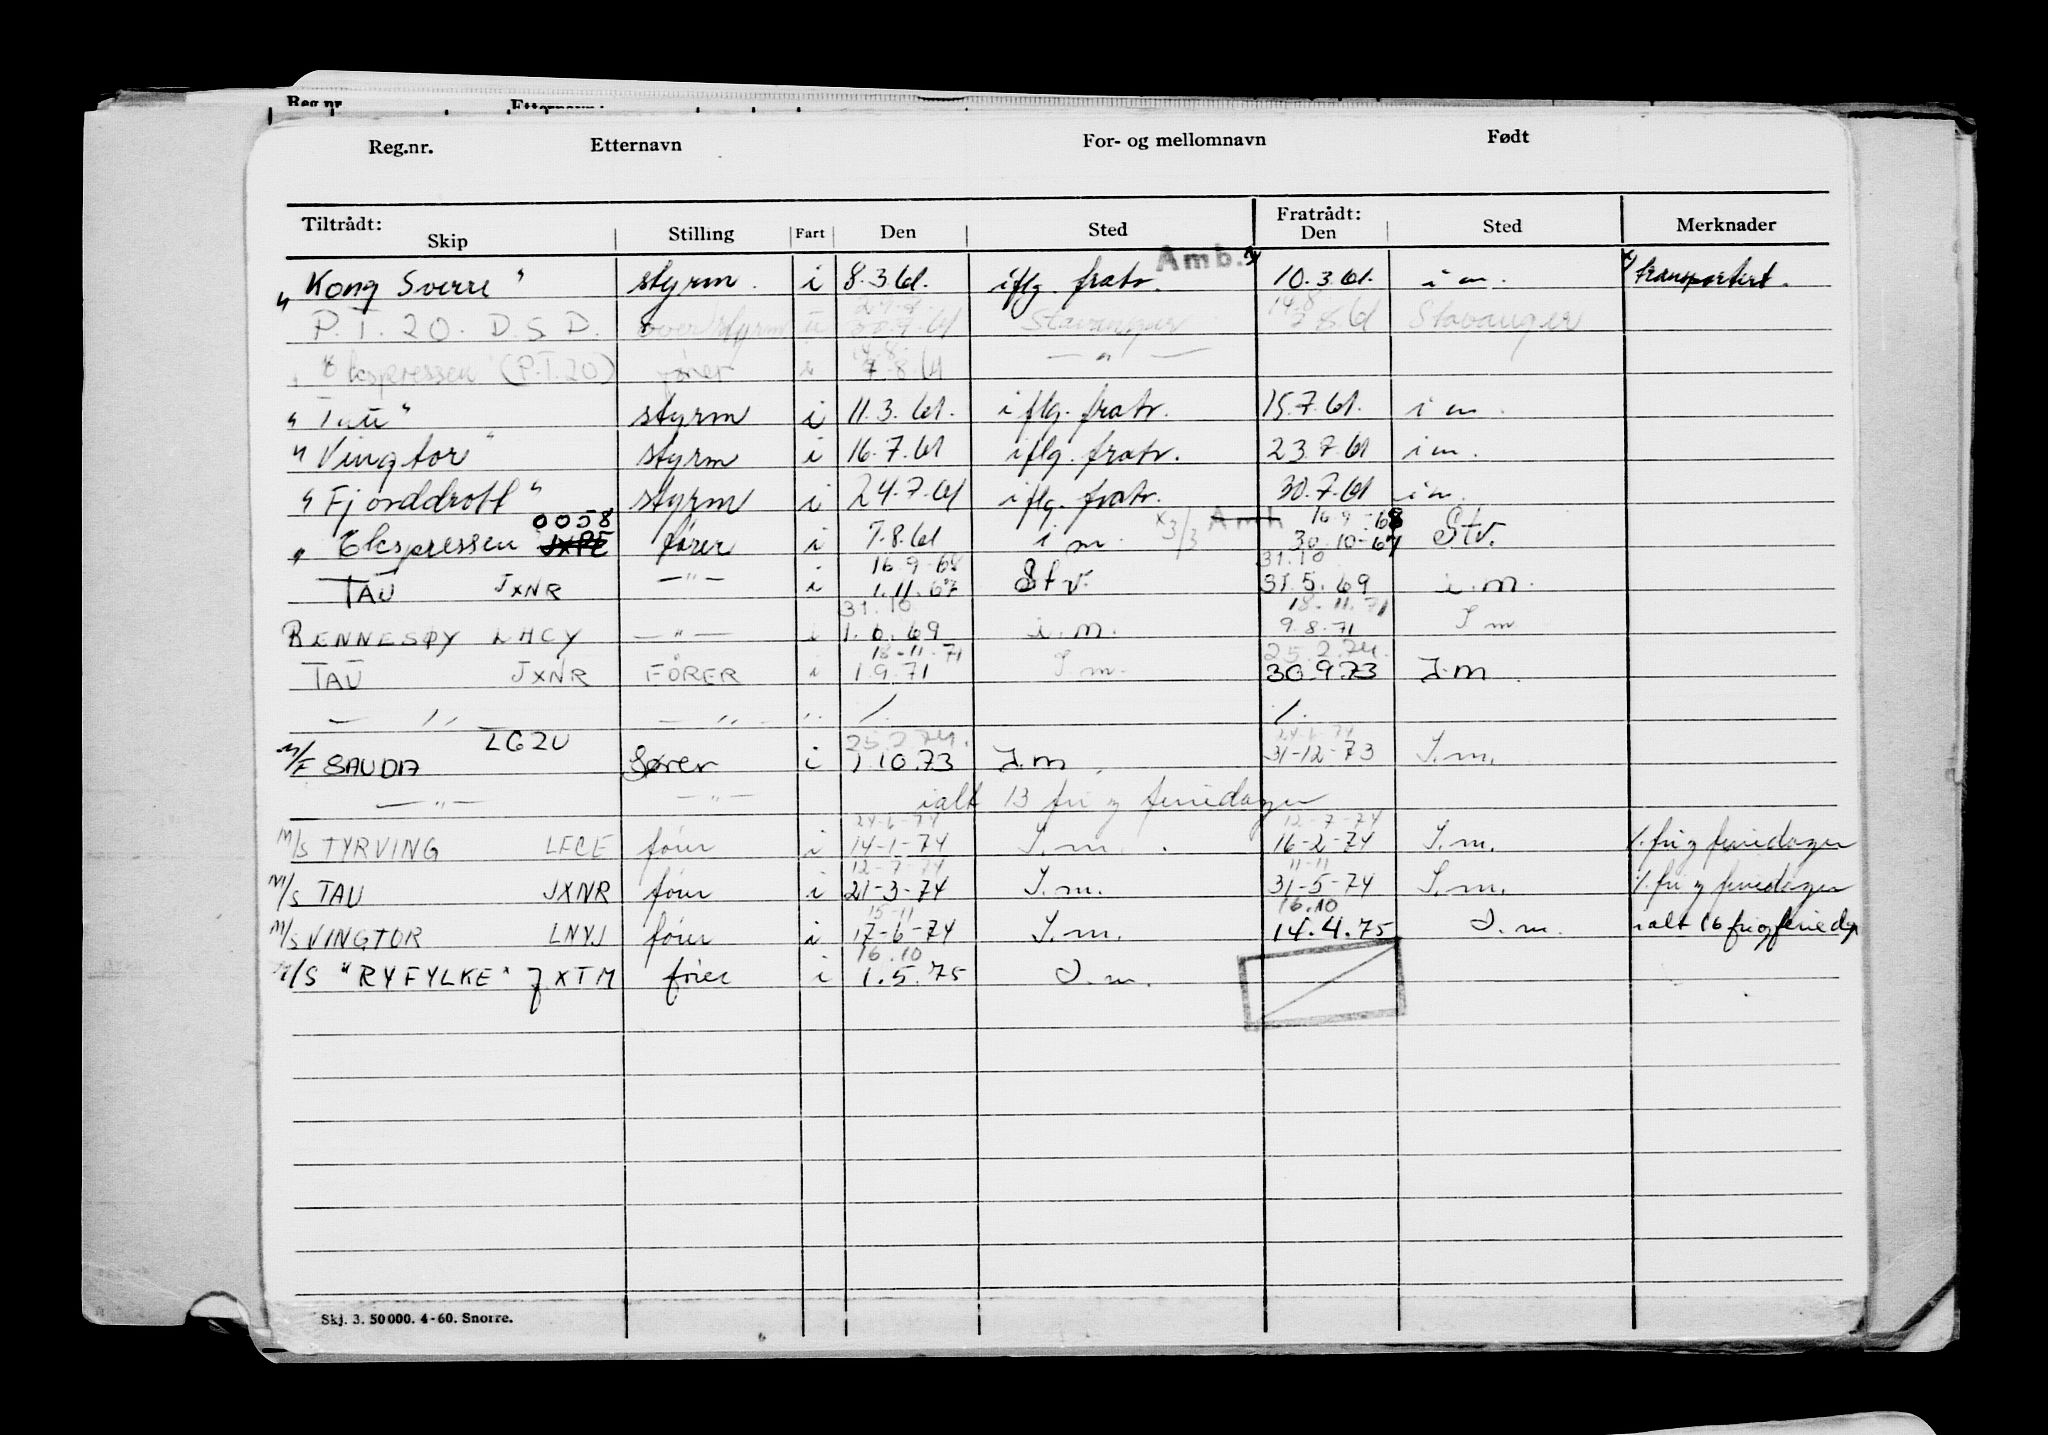 Reg.nr. Etternavn
Reg.nr. Etternavn For- og mellomnavn Født
Tiltrådt: Fratrådt:
Skip Stilling Fart Den Sted Den Sted Merknader
Amb. x
"Kong Sverre" styrm. i 8.3.61. iflg. fratr. 10.3.61. i m. x transportert.
P.T. 20. D.S.D. overstyrm 61 Stavanger 14/8 7.8.61 Stavanger
"Ekspressen (P.T.20) fører i 7.8.61 — " —
"Tau" styrm i 11.3.61. iflg. fratr. 15.7.61. i m.
"Vingtor" styrm i 16.7.61 iflg. fratr. 23.7.61 i m.
"Fjorddrott" styrm i 24.7.61 iflg. fratr. 30.7.61 i m.
0058 x3/3 Amb 16.9-68
"Ekspressen JXPE fører i 7.8.61 i m. 30.10-67 Stv.
16.9-68 31.10
TAU JXNR — " — i 1.11.67 Stv. 31.5.69 i.m.
31.10 18-11.71
RENNESØY LHCY — " — i 1.6.69 i.m. 9.8.71 I m
18-11-71 25.2.74.
TAU JXNR FØRER i 1.9.71 I m. 30.9.73 I.m.
— " — — " — " /. /.
LGZU 25.2.74. 24-6-74
M/F SAUDA fører i 1.10.73 I.m. 31-12-73 I.m.
— " — — " — ialt 13 fri og feriedager
24-6-74 12-7-74
M/S TYRVING LFCE fører i 14-1-74 I.m. 16-2-74 I.m. /. fri og feriedager
12-7-74 11-11
M/S TAU JXNR fører i 21-3-74 I.m. 31-5-74 I.m. /. fri og feriedager
15-11 16.10
M/S VINGTOR LNYJ fører i 17-6-74 I.m. 14.4.75 I.m. ialt 16 fri og feriedg
16.10
M/S "RYFYLKE" JXTM fører i 1.5.75 I.m.
Skj. 3. 50 000. 4-60. Snorre.